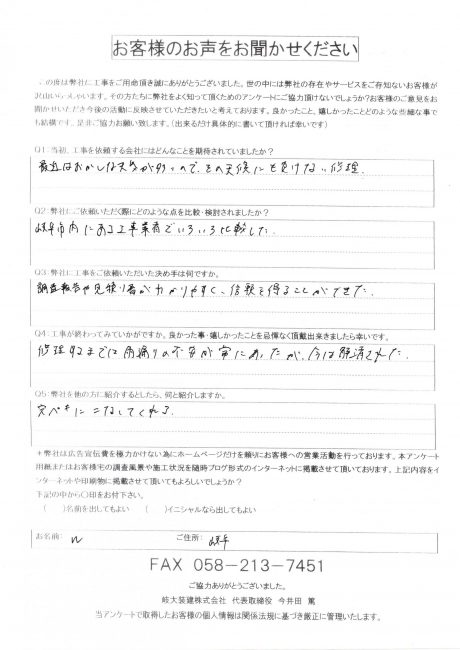 お客様のお声をお聞かせください
この度は弊社に工事をご用命頂き誠にありがとうございました。世の中には弊社の存在やサービスをご存知ないお客様が
沢山いらっしゃいます。その方たちに弊社をよく知って頂くためのアンケートにご協力頂けないでしょうか?お客様のご意見をお
聞かせいただき今後の活動に反映させていただきたいと考えております。良かったこと、嬉しかったことどのような些細な事で
も結構です。是非ご協力お願い致します。(出来るだけ具体的に書いて頂ければ幸いです)
Q1:当初、工事を依頼する会社にはどんなことを期待されていましたか?
最近はおかしな天気が多いので、その天候にも負けない修理.
Q2:弊社にご依頼いただく際にどのような点を比較・検討されましたか?
岐阜市内にある工事業者でいろいろ比較した.
Q3:弊社に工事をご依頼いただいた決め手は何ですか。
調査報告や見積り書がわかりやすく、信頼を得ることができた.
Q4:工事が終わってみていかがですか。良かった事・嬉しかったことを忌憚なく頂戴出来きましたら幸いです。
修理するまでは雨漏りの不安が常にあったが、今は解消された.
Q5:弊社を他の方に紹介するとしたら、何と紹介しますか。
完ぺきにこなしてくれる.
*弊社は広告宣伝費を極力かけない為にホームページだけを頼りにお客様への営業活動を行っております。本アンケート
用紙またはお客様宅の調査風景や施工状況を随時ブログ形式のインターネットに掲載させて頂いております。上記内容をイ
ンターネットや印刷物に掲載させて頂いてもよろしいでしょうか?
下記の中から〇印をお付下さい。
( )名前を出してもよい ( )イニシャルなら出してもよい
お名前: N ご住所: 岐阜
FAX 058-213-7451
ご協力ありがとうございました。
岐大装建株式会社 代表取締役 今井田 篤
当アンケートで取得したお客様の個人情報は関係法規に基づき厳正に管理いたします。